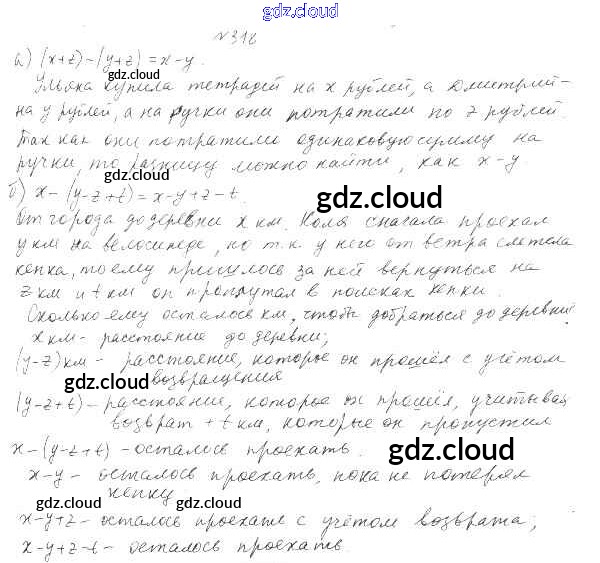 gdz.cloud
№318
а) (x+z)-(y+z)=x-y.
Ульяна купила тетрадей на x рублей, а Дмитрий -
на y рублей, а на ручки они потратили по z рублей.
Так как они потратили одинаковую сумму на
ручки то разницу можно найти, как x-y
б) x-(y-z+t)=x-y+z-t.
От города до деревни x км. Коля сначала проехал
y км на велосипеде, но т.к. у него от ветра слетела
кепка, то ему пришлось за ней вернуться на
z км и t км он пропутал в поисках кепки.
Сколько ему осталось км, чтобы добраться до деревни
x км - расстояние до деревни;
(y-z) км - расстояние, которое он прошёл с учётом
возвращения
(y-z+t) - расстояние, которое он прошёл, учитывая
возврат + t км, которые он пропустил
x-(y-z+t) - осталось проехать.
x-y - осталось проехать, пока не потерял
кепку
x-y+z - осталось проехать с учётом возврата;
x-y+z-t - осталось проехать.
gdz.cloud
gdz.cloud
gdz.cloud
gdz.cloud
gdz.cloud
gdz.cloud
gdz.cloud
gdz.cloud